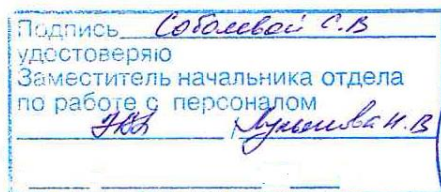 Подпись Соболевой С.В
удостоверяю
Заместитель начальника отдела
по работе с персоналом
Н.В